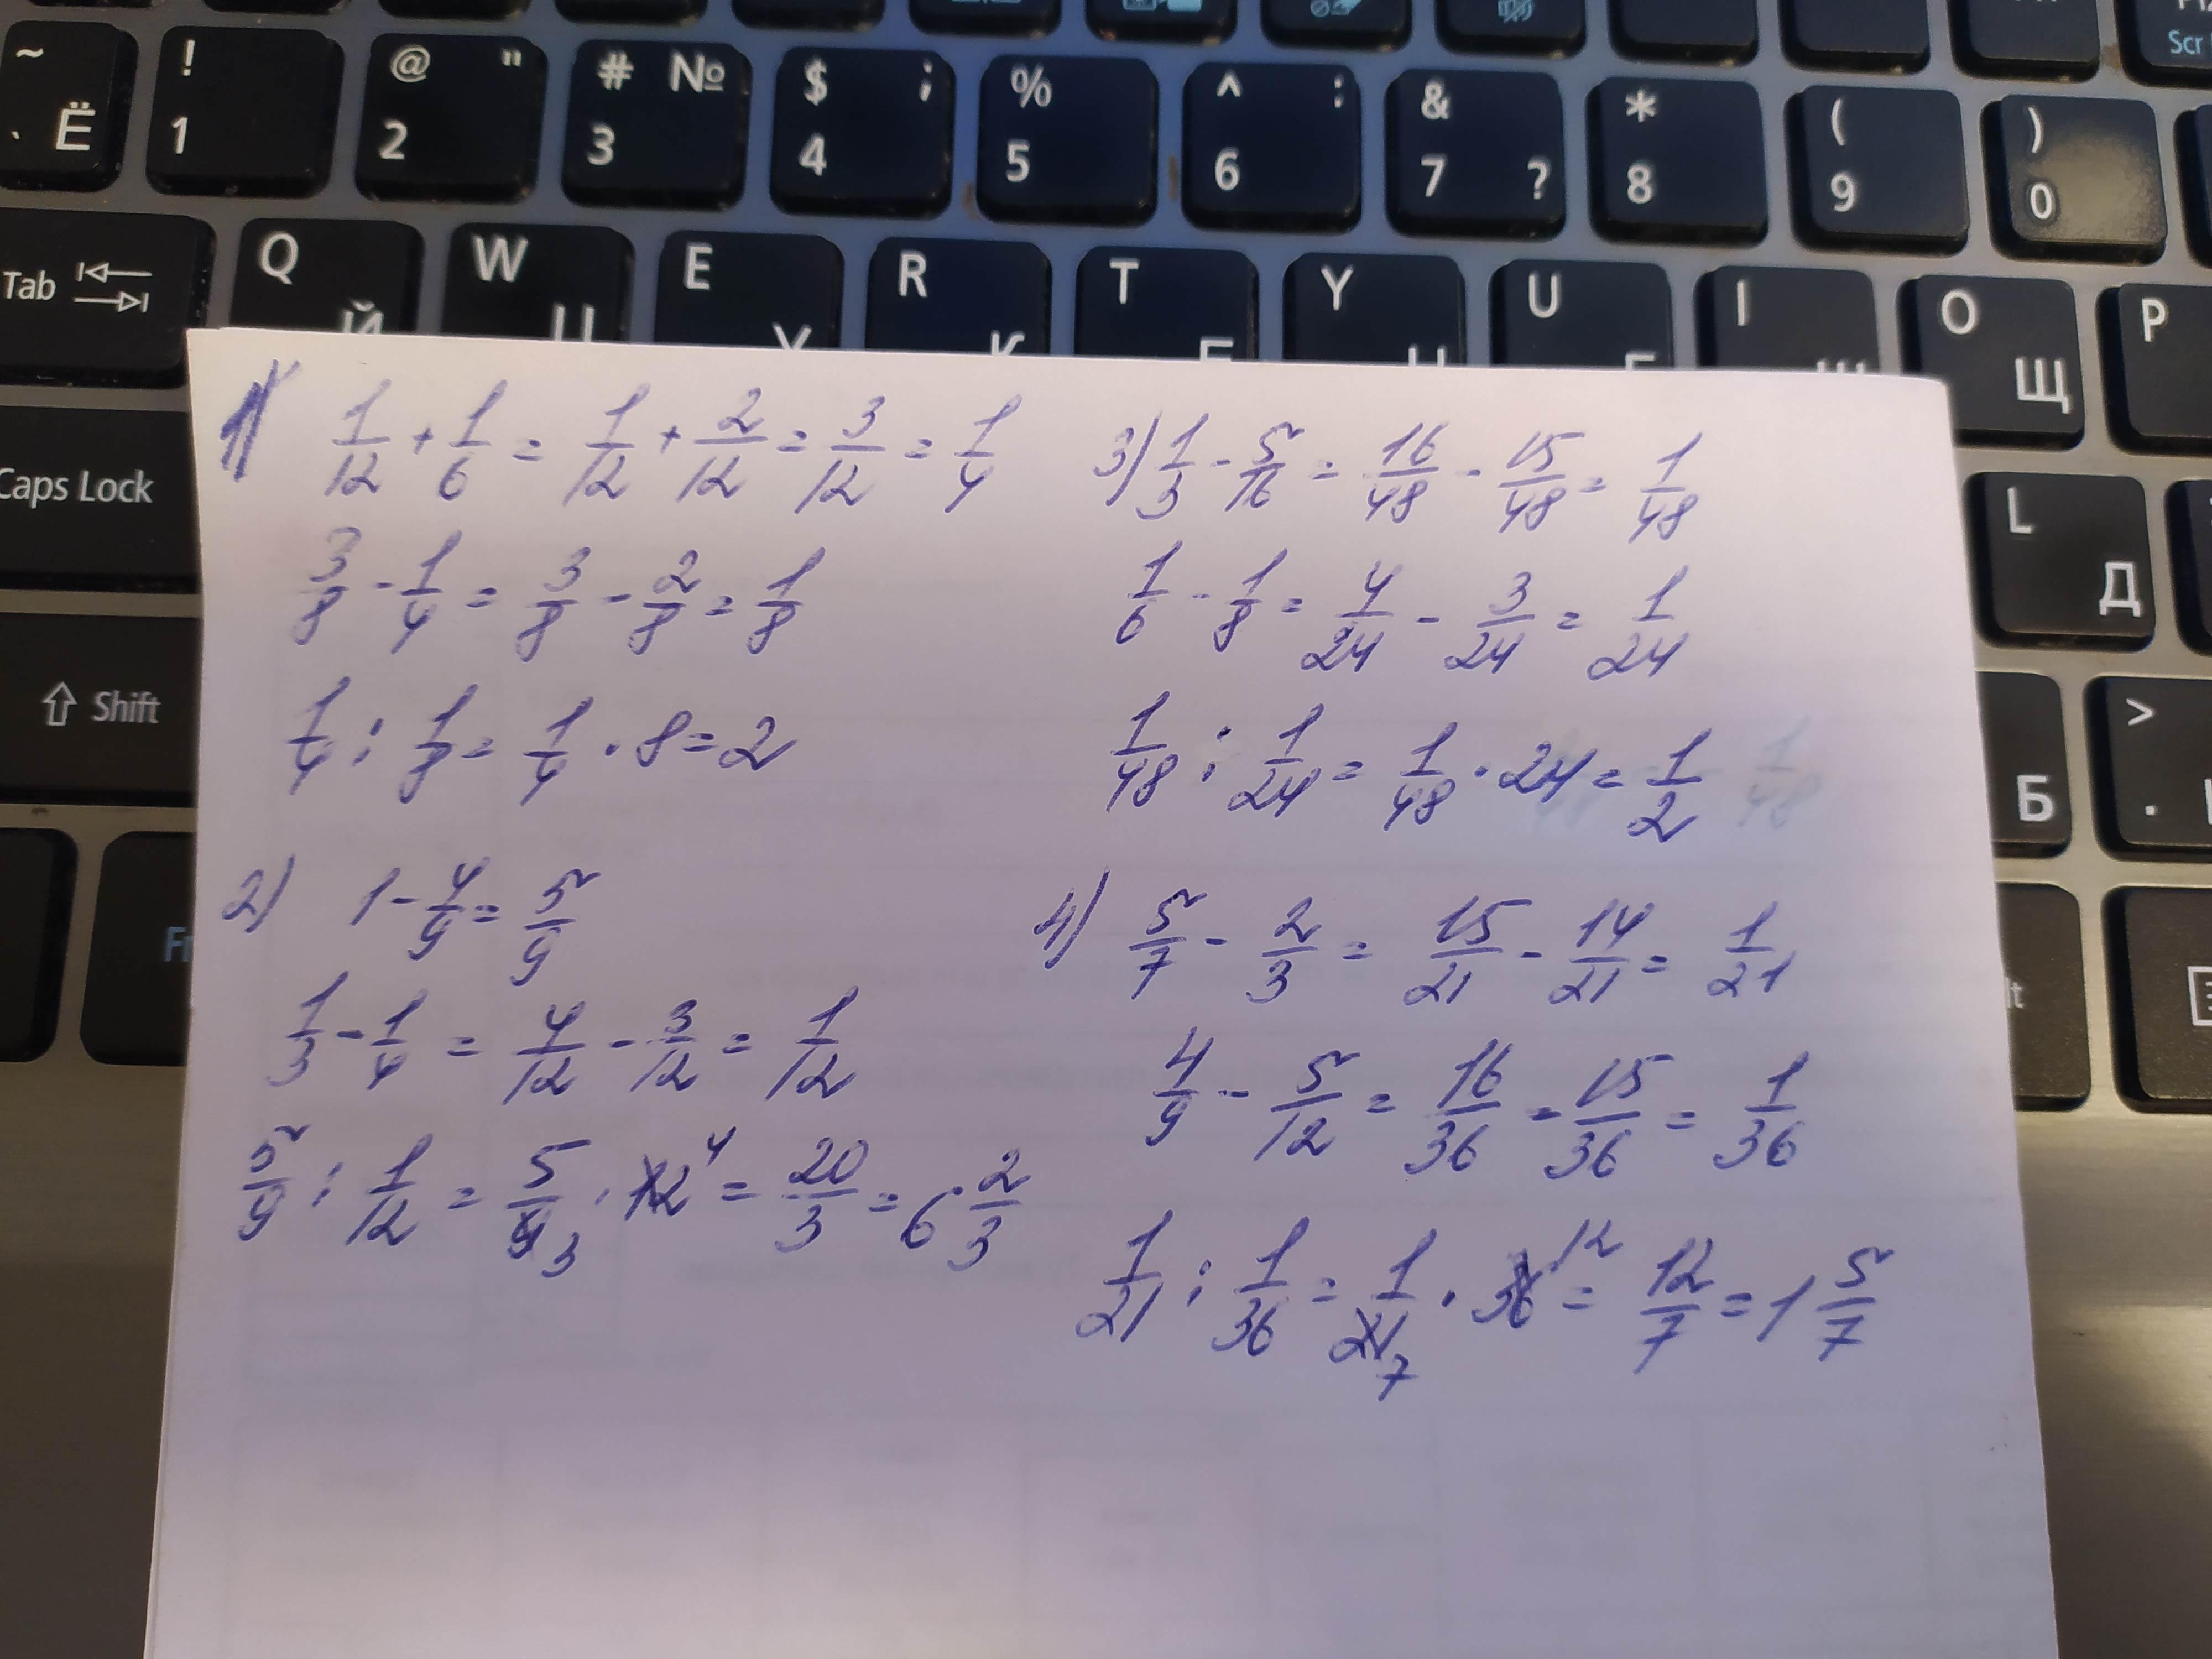 ~ ` Ё ! 1 @ " 2 # № 3 $ ; 4 % 5 ^ : 6 & 7 ? * 8 ( 9 ) 0
Scr
Tab Q W E R T Y U I O Щ P
Caps Lock L Д
Shift Б > .
Fn
1) 1/12 + 1/6 = 1/12 + 2/12 = 3/12 = 1/4
3/8 - 1/4 = 3/8 - 2/8 = 1/8
1/4 : 1/8 = 1/4 · 8 = 2
2) 1 - 4/9 = 5/9
1/3 - 1/4 = 4/12 - 3/12 = 1/12
5/9 : 1/12 = 5/9 3 · 12 4 = 20/3 = 6 2/3
3) 1/3 - 5/16 = 16/48 - 15/48 = 1/48
1/6 - 1/8 = 4/24 - 3/24 = 1/24
1/48 : 1/24 = 1/48 · 24 = 1/2
4) 5/7 - 2/3 = 15/21 - 14/21 = 1/21
4/9 - 5/12 = 16/36 - 15/36 = 1/36
1/21 : 1/36 = 1/21 7 · 36 12 = 12/7 = 1 5/7